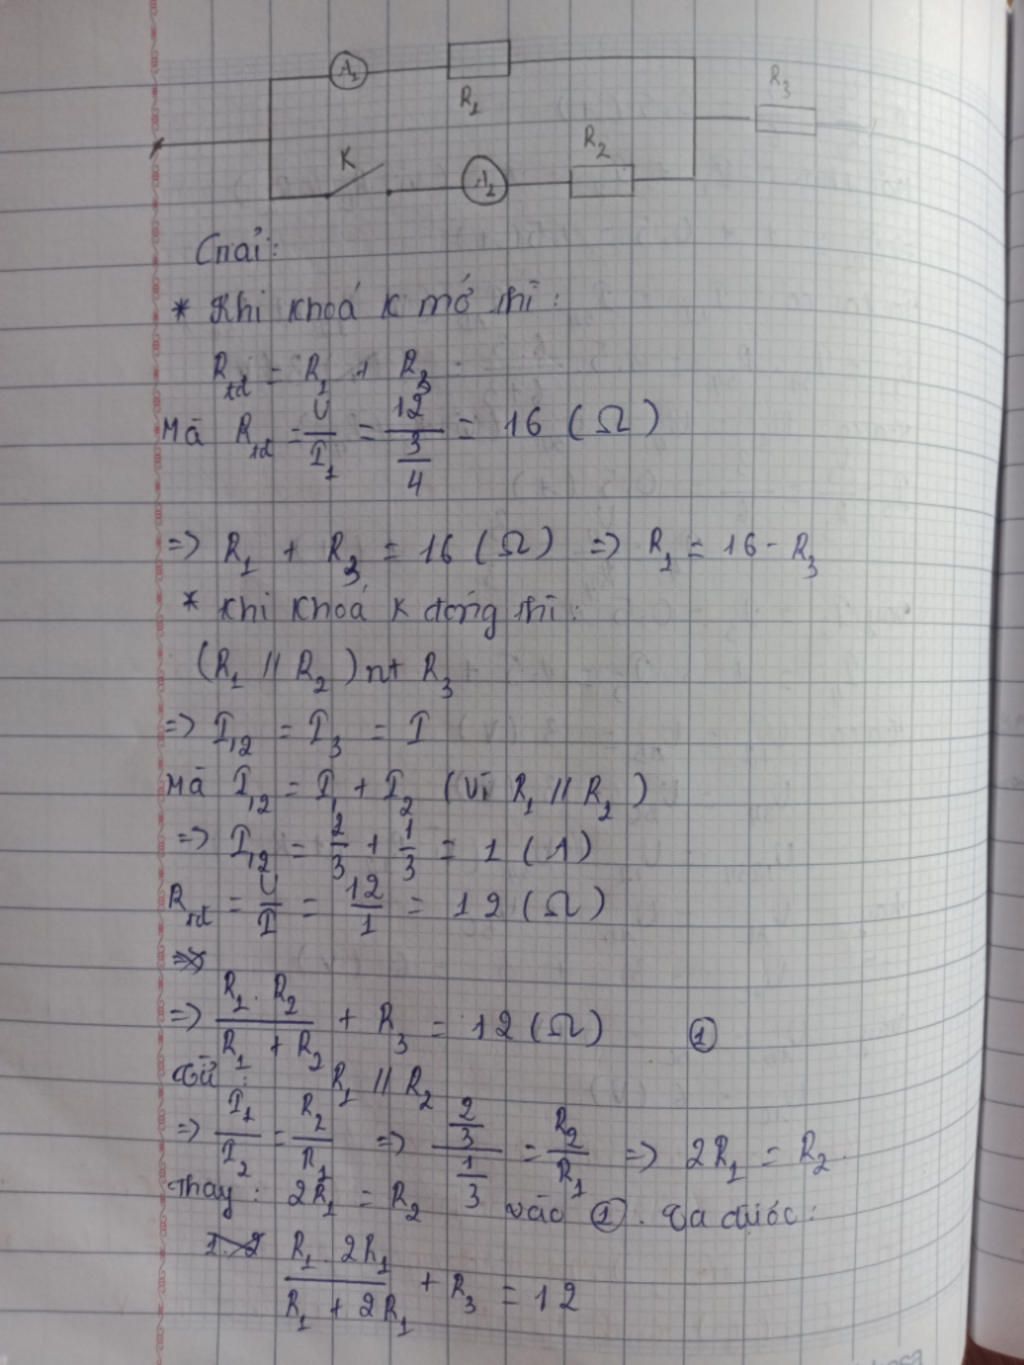 A₁
R₁
R₃
K
A₂
R₂
Giải:
* Khi khoá K mở thì:
R_tđ = R₁ + R₃
Mà R_tđ = U/I₁ = 12/(3/4) = 16 (Ω)
=> R₁ + R₃ = 16 (Ω) => R₁ = 16 - R₃
* Khi khoá K đóng thì:
(R₁ // R₂) nt R₃
=> I₁₂ = I₃ = I
Mà I₁₂ = I₁ + I₂ (vì R₁ // R₂)
=> I₁₂ = 2/3 + 1/3 = 1 (A)
R_tđ = U/I = 12/1 = 12 (Ω)
=> (R₁ . R₂)/(R₁ + R₂) + R₃ = 12 (Ω) ①
Từ: R₁ // R₂
=> I₁/I₂ = R₂/R₁ => (2/3)/(1/3) = R₂/R₁ => 2R₁ = R₂.
Thay: 2R₁ = R₂ vào ①. Ta được:
(R₁ . 2R₁)/(R₁ + 2R₁) + R₃ = 12